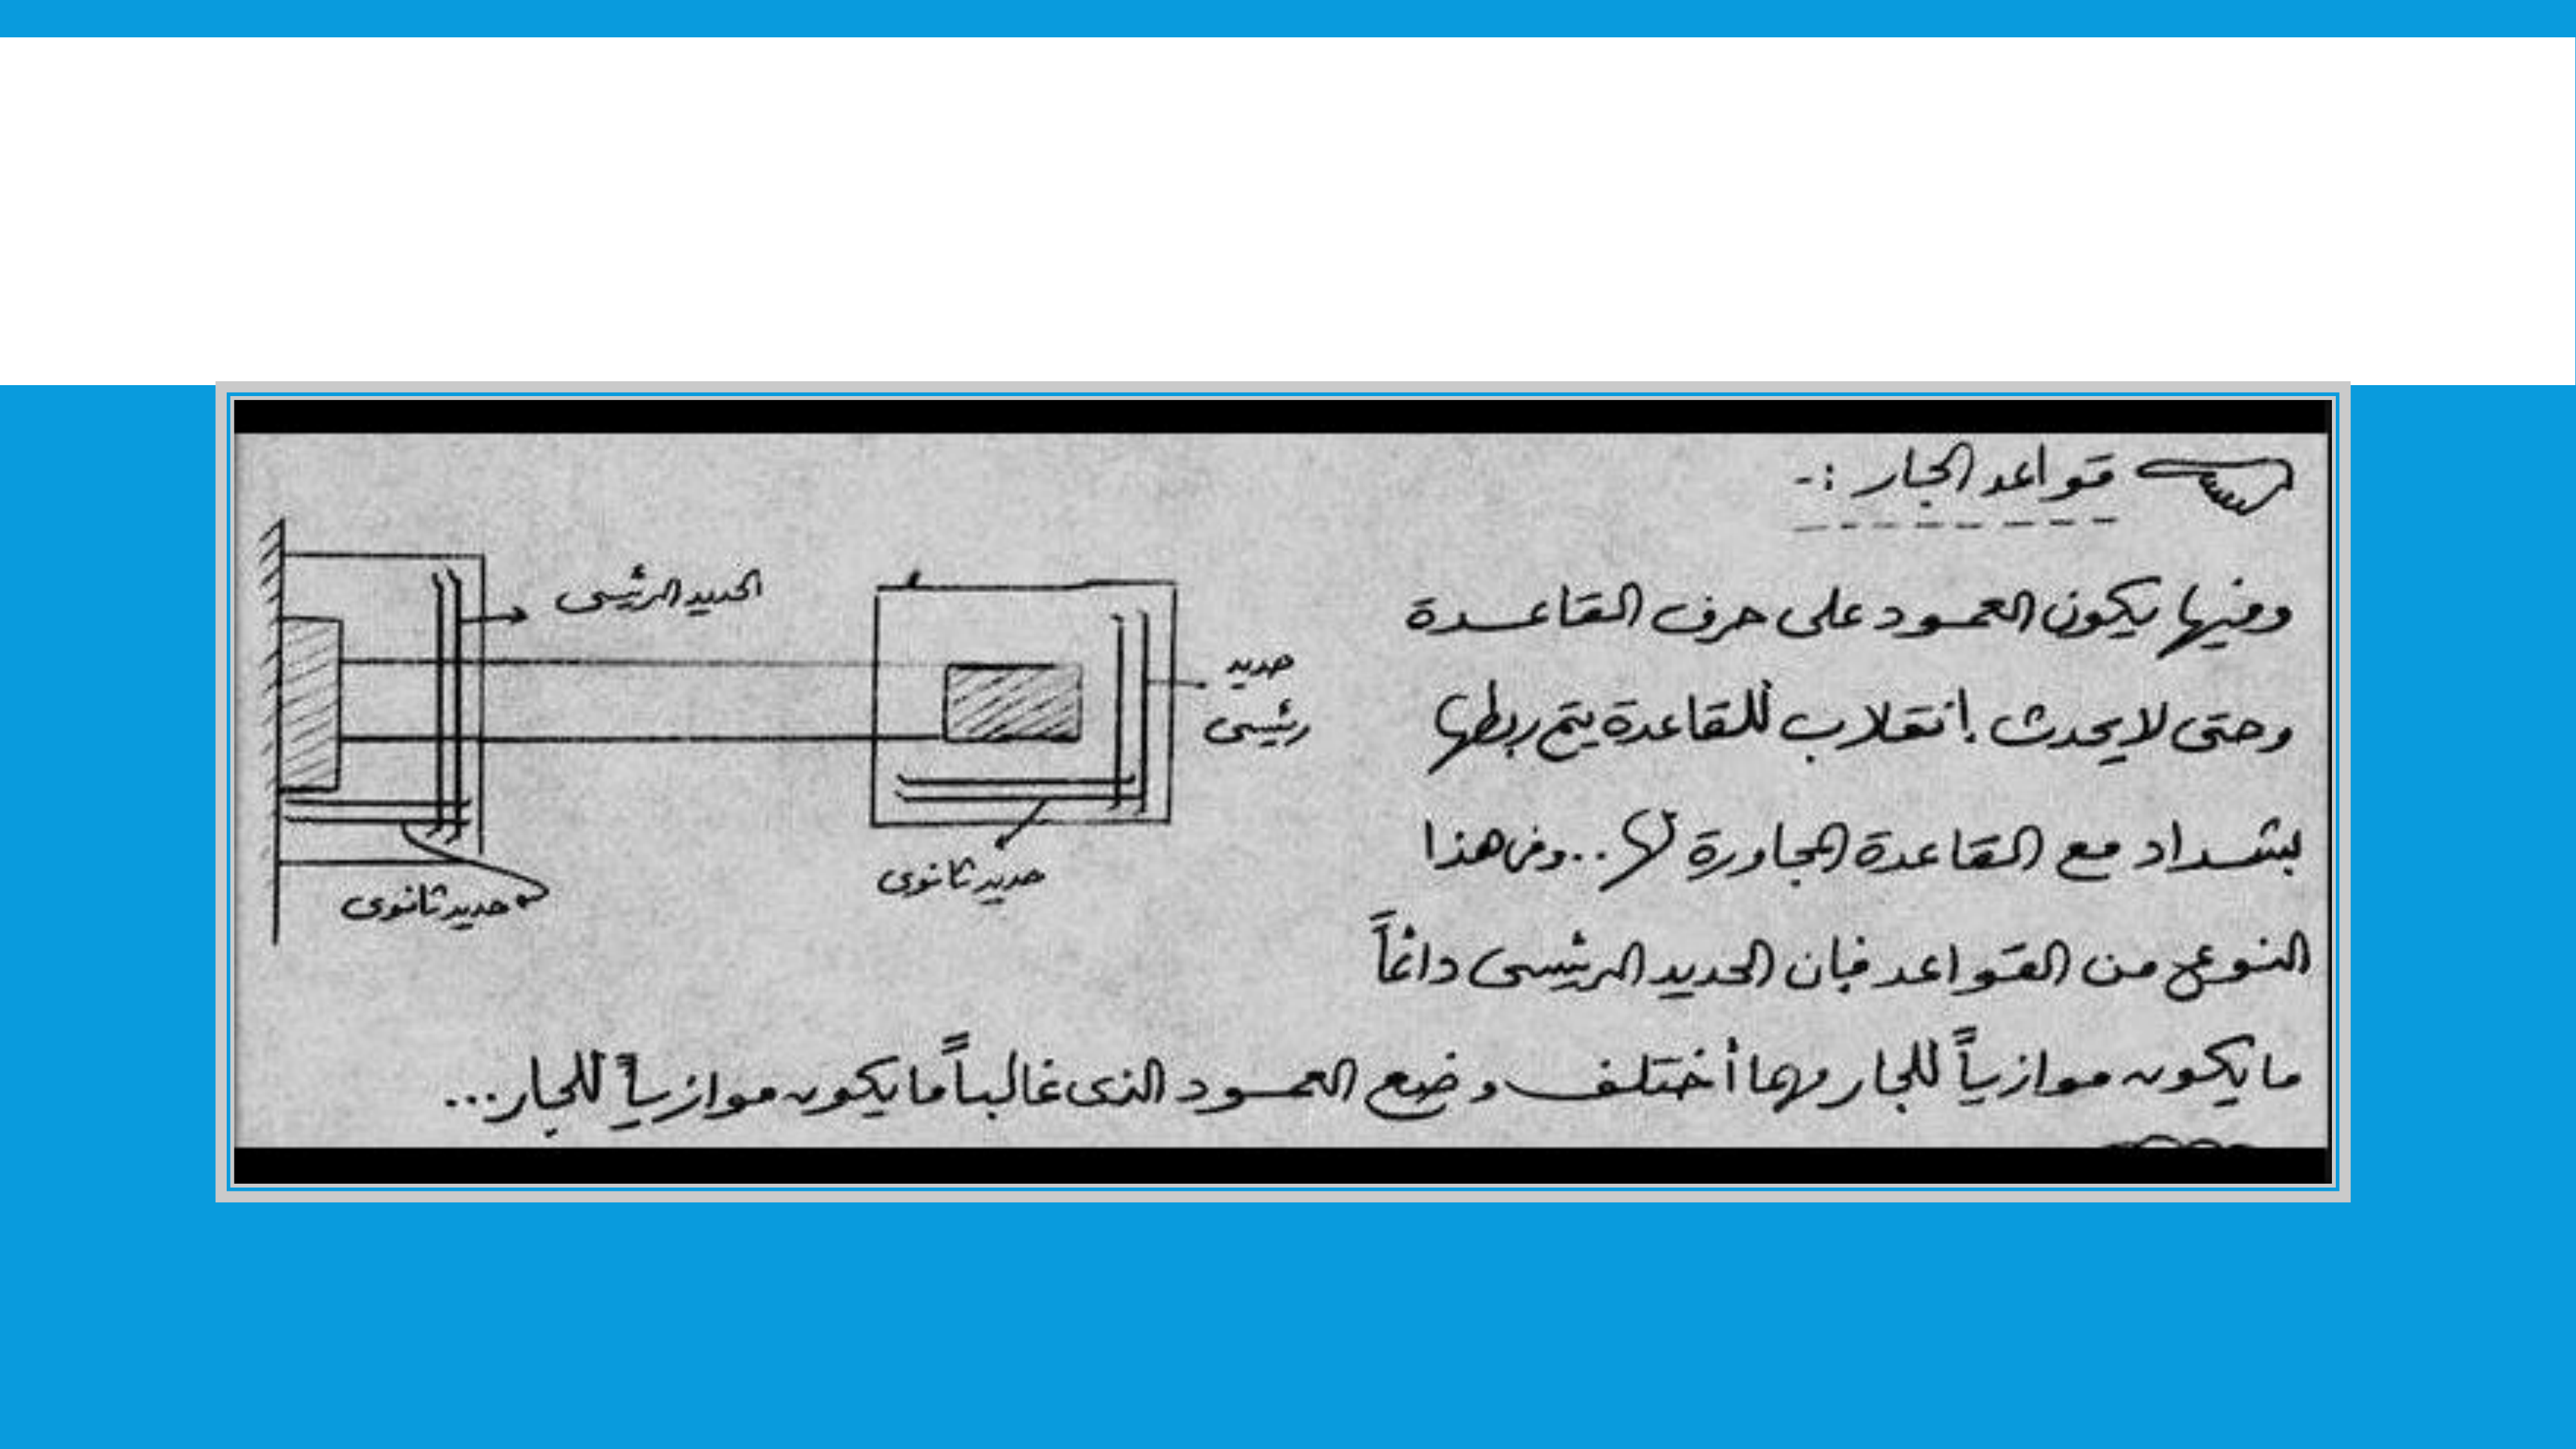 قواعد الجار :-
وفيها يكون العمود على حرف القاعدة
وحتى لا يحدث انقلاب للقاعدة يتم ربطها
بشداد مع القاعدة المجاورة لها .. وفى هذا
النوع من القواعد فإن الحديد الرئيسى دائماً
ما يكون موازياً للجار مهما أختلف وضع العمود الذى غالباً ما يكون موازياً للجار...
الحديد الرئيسى
حديد
رئيسى
حديد ثانوى
حديد ثانوى